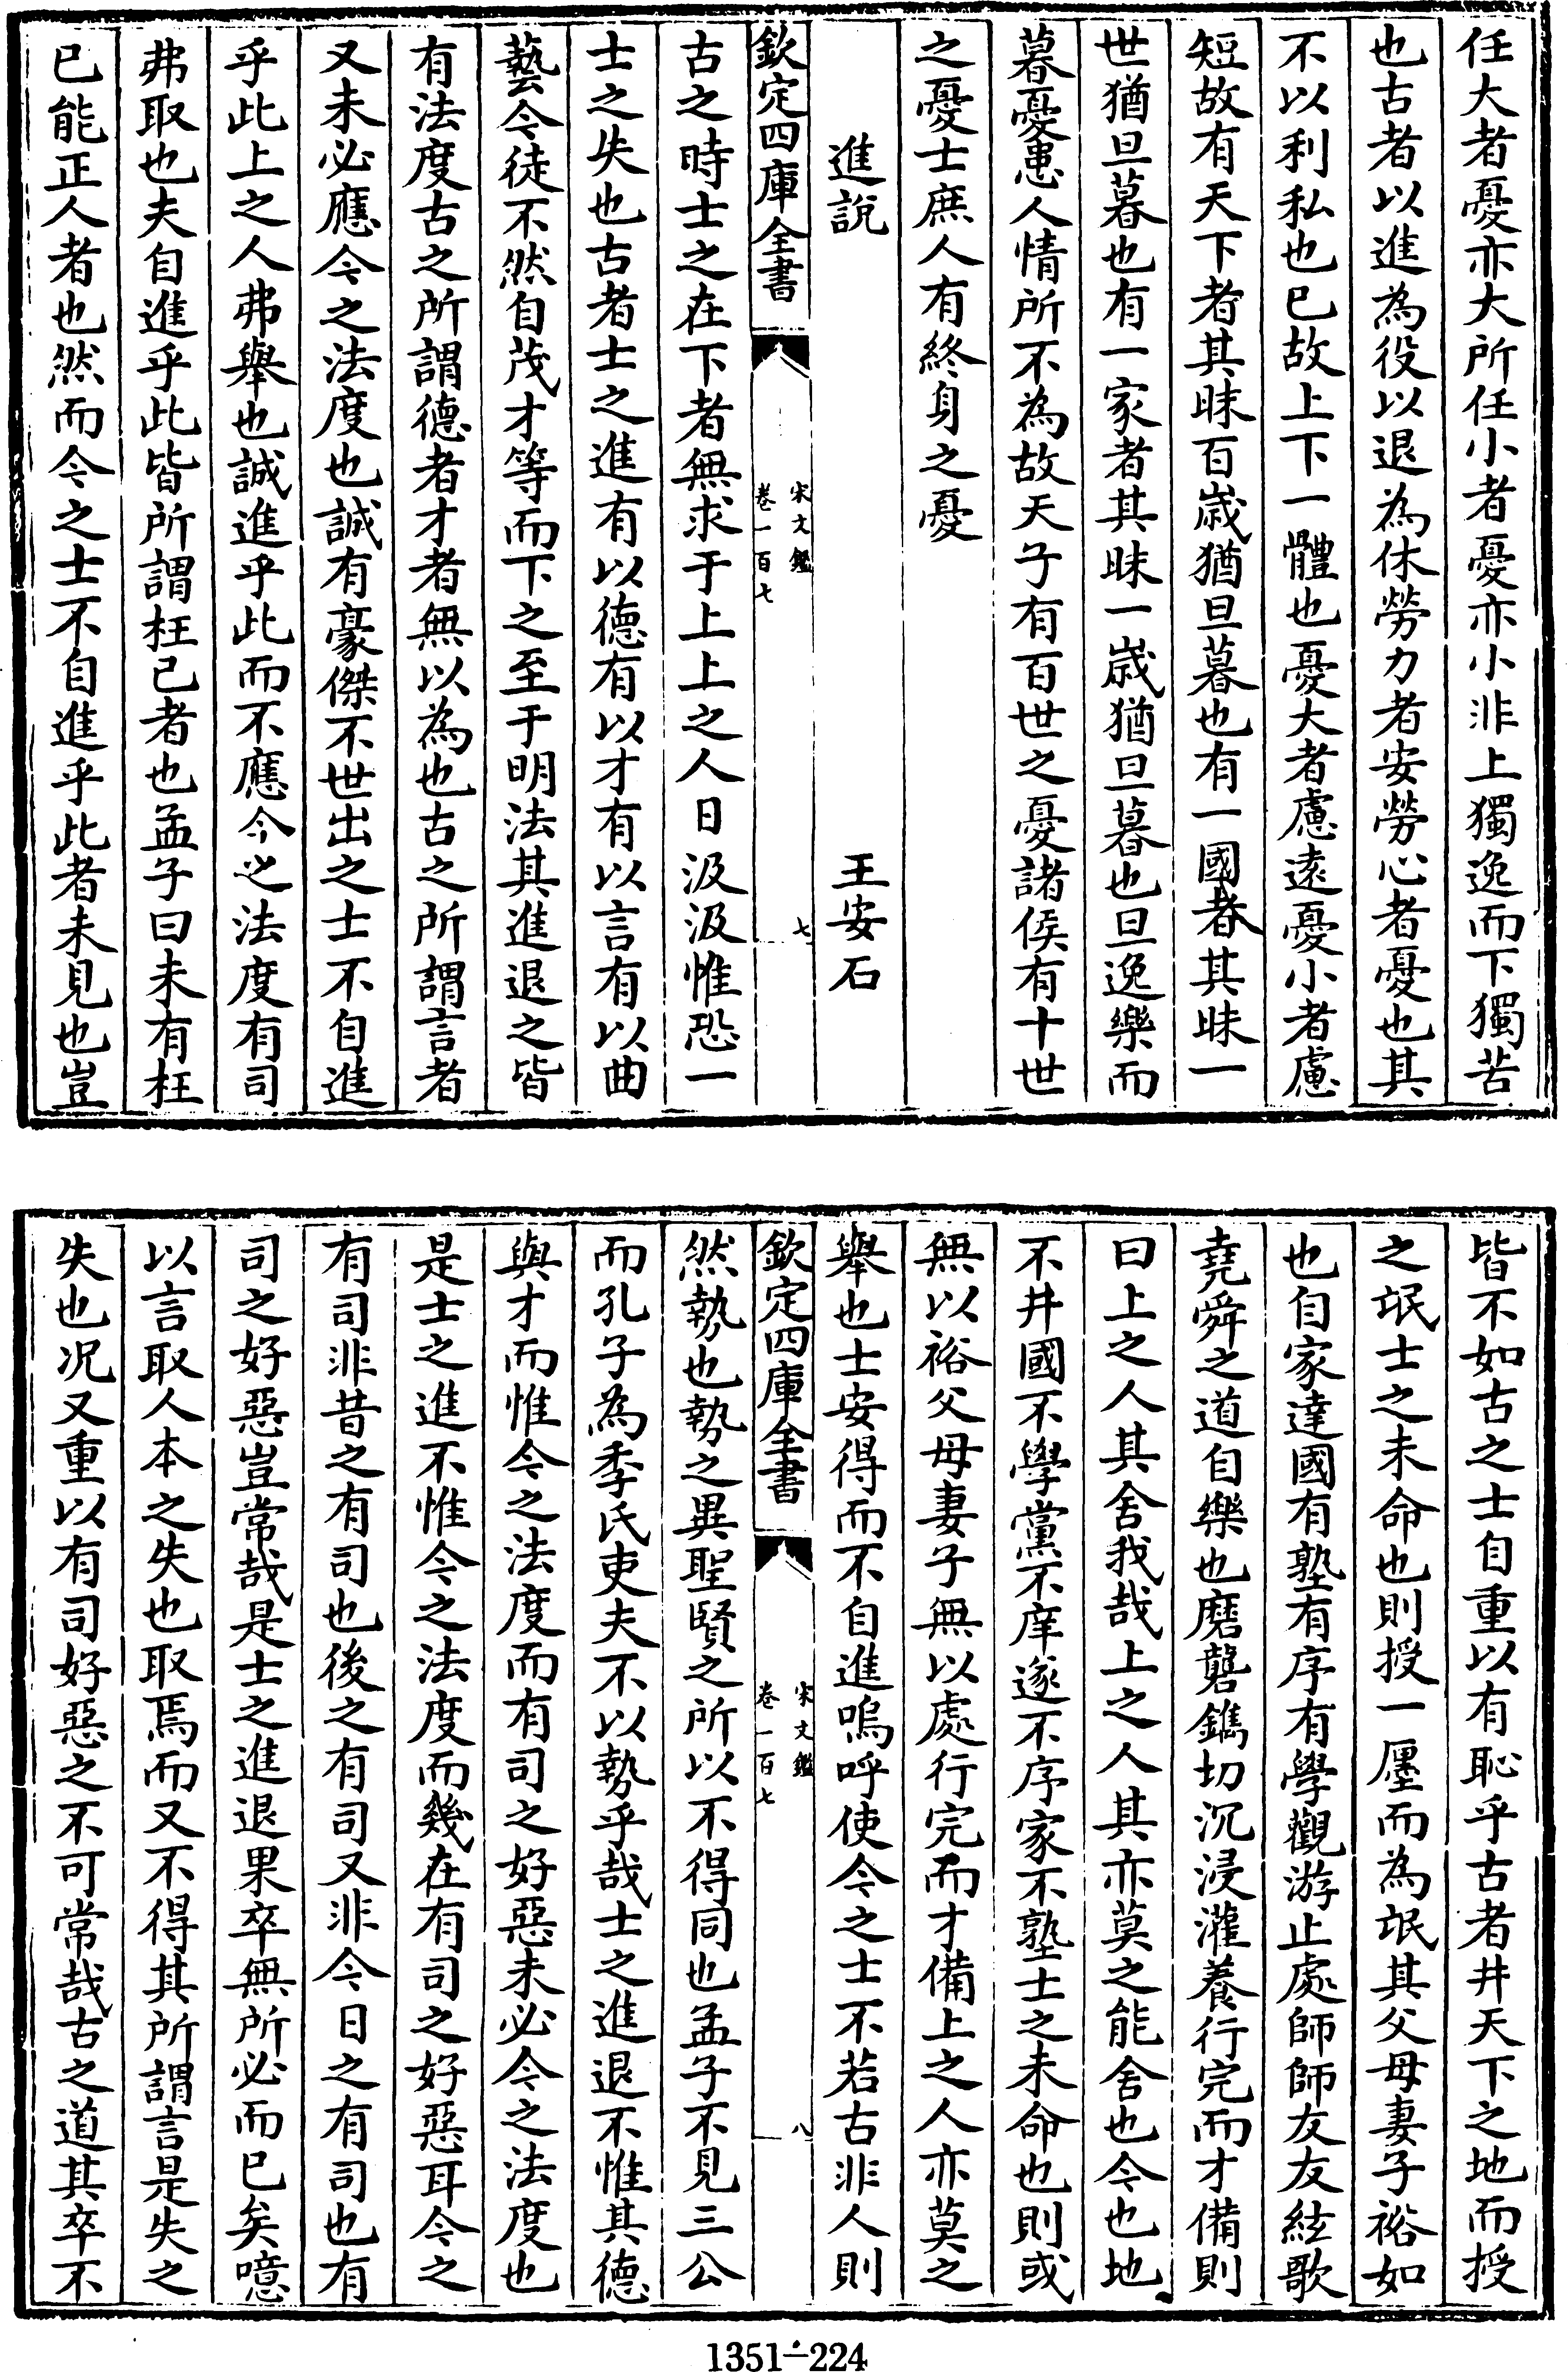 任大者憂亦大所任小者憂亦小非上獨逸而下獨苦
也古者以進為役以退為休勞力者安勞心者憂也其
不以利私也已故上下一體也憂大者慮遠憂小者慮
短故有天下者其昧百歲猶旦暮也有一國者其昧一
世猶旦暮也有一家者其昧一歲猶旦暮也旦逸樂而
暮憂患人情所不為故天子有百世之憂諸侯有十世
之憂士庶人有終身之憂
進說 王安石
欽定四庫全書 宋文鑑 卷一百七 七
古之時士之在下者無求于上上之人日汲汲惟恐一
士之失也古者士之進有以德有以才有以言有以曲
藝今徒不然自茂才等而下之至于明法其進退之皆
有法度古之所謂德者才者無以為也古之所謂言者
又未必應今之法度也誠有豪傑不世出之士不自進
乎此上之人弗舉也誠進乎此而不應今之法度有司
弗取也夫自進乎此皆所謂枉己者也孟子曰未有枉
已能正人者也然而今之士不自進乎此者未見也豈
皆不如古之士自重以有恥乎古者井天下之地而授
之氓士之未命也則授一廛而為氓其父母妻子裕如
也自家達國有塾有序有學觀游止處師師友友絃歌
堯舜之道自樂也磨礱鐫切沉浸灌養行完而才備則
曰上之人其舍我哉上之人其亦莫之能舍也今也地
不井國不學黨不庠遂不序家不塾士之未命也則或
無以裕父母妻子無以處行完而才備上之人亦莫之
舉也士安得而不自進嗚呼使今之士不若古非人則
欽定四庫全書 宋文鑑 卷一百七 八
然勢也勢之異聖賢之所以不得同也孟子不見三公
而孔子為季氏吏夫不以勢乎哉士之進退不惟其德
與才而惟今之法度而有司之好惡未必今之法度也
是士之進不惟今之法度而幾在有司之好惡耳今之
有司非昔之有司也後之有司又非今日之有司也有
司之好惡豈常哉是士之進退果卒無所必而已矣噫
以言取人本之失也取焉而又不得其所謂言是失之
失也況又重以有司好惡之不可常哉古之道其卒不
1351-224